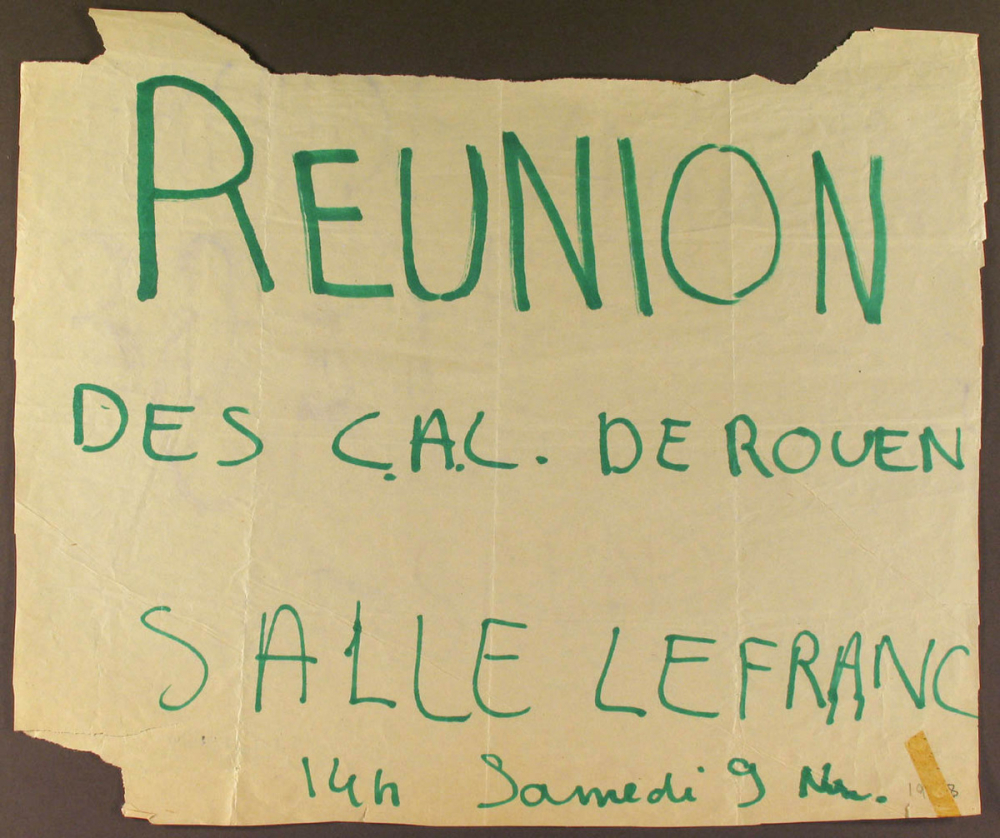 REUNION
DES C.A.C. DE ROUEN
SALLE LEFRANC
14h Samedi 9 Nov.